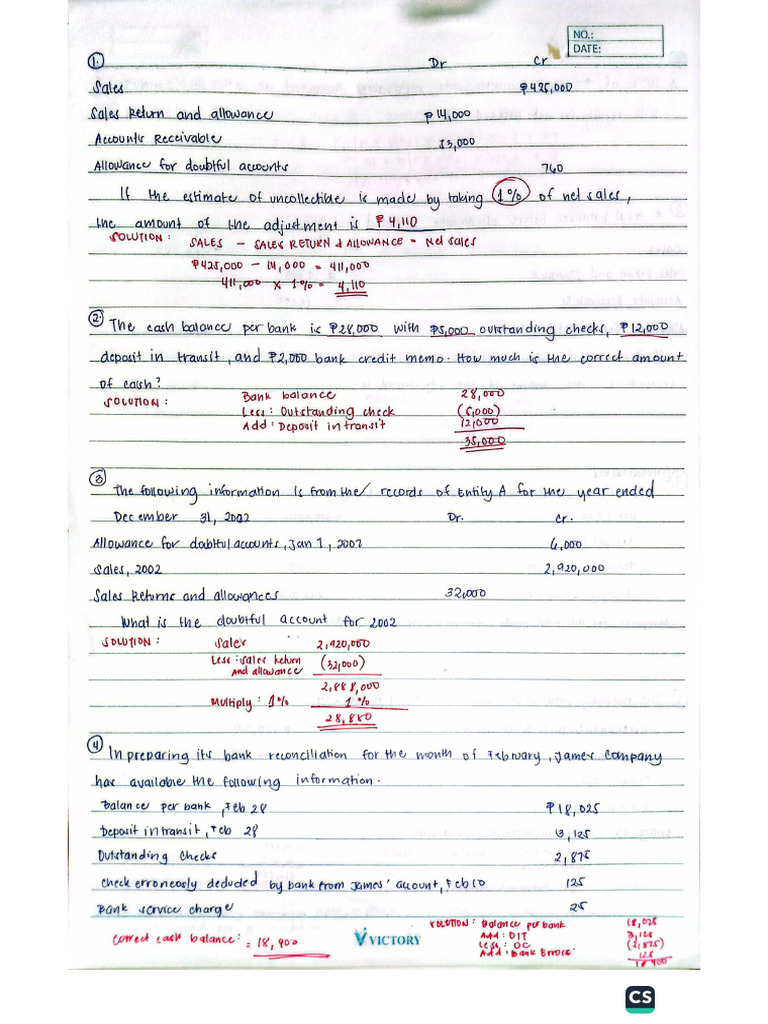 NO.:
DATE:
1. Dr Cr
Sales ₱425,000
Sales Return and allowance ₱14,000
Accounts Receivable 53,000
Allowance for doubtful accounts 760
If the estimate of uncollectible is made by taking 1% of net sales,
the amount of the adjustment is ₱4,110
SOLUTION: SALES – SALES RETURN & ALLOWANCE = Net sales
₱425,000 – 14,000 = 411,000
411,000 x 1% = 4,110
2. The cash balance per bank is ₱28,000 with ₱5,000 outstanding checks, ₱12,000
deposit in transit, and ₱2,000 bank credit memo. How much is the correct amount
of cash?
SOLUTION: Bank balance 28,000
Less: Outstanding check (5,000)
Add: Deposit in transit 12,000
35,000
3 The following information is from the records of Entity A for the year ended
December 31, 2002 Dr. Cr.
Allowance for doubtful accounts, Jan 1, 2002 6,000
Sales, 2002 2,920,000
Sales Returns and allowances 32,000
What is the doubtful account for 2002
SOLUTION: Sales 2,920,000
Less: Sales Return (32,000)
and allowance
2,888,000
Multiply: 1% 1%
28,880
4 In preparing its bank reconciliation for the month of February, James Company
has available the following information.
Balance per bank, Feb 28 ₱18,025
Deposit in transit, Feb 28 3,125
Outstanding Checks 2,875
Check erroneosly deducted by bank from James' account, Feb 10 125
Bank service charge 25
SOLUTION: Balance per bank 18,025
Add: DIT 3,125
Less: OC (2,875)
Add: Bank Errors: 125
18,400
Correct cash balance: = 18,400
VICTORY
CS